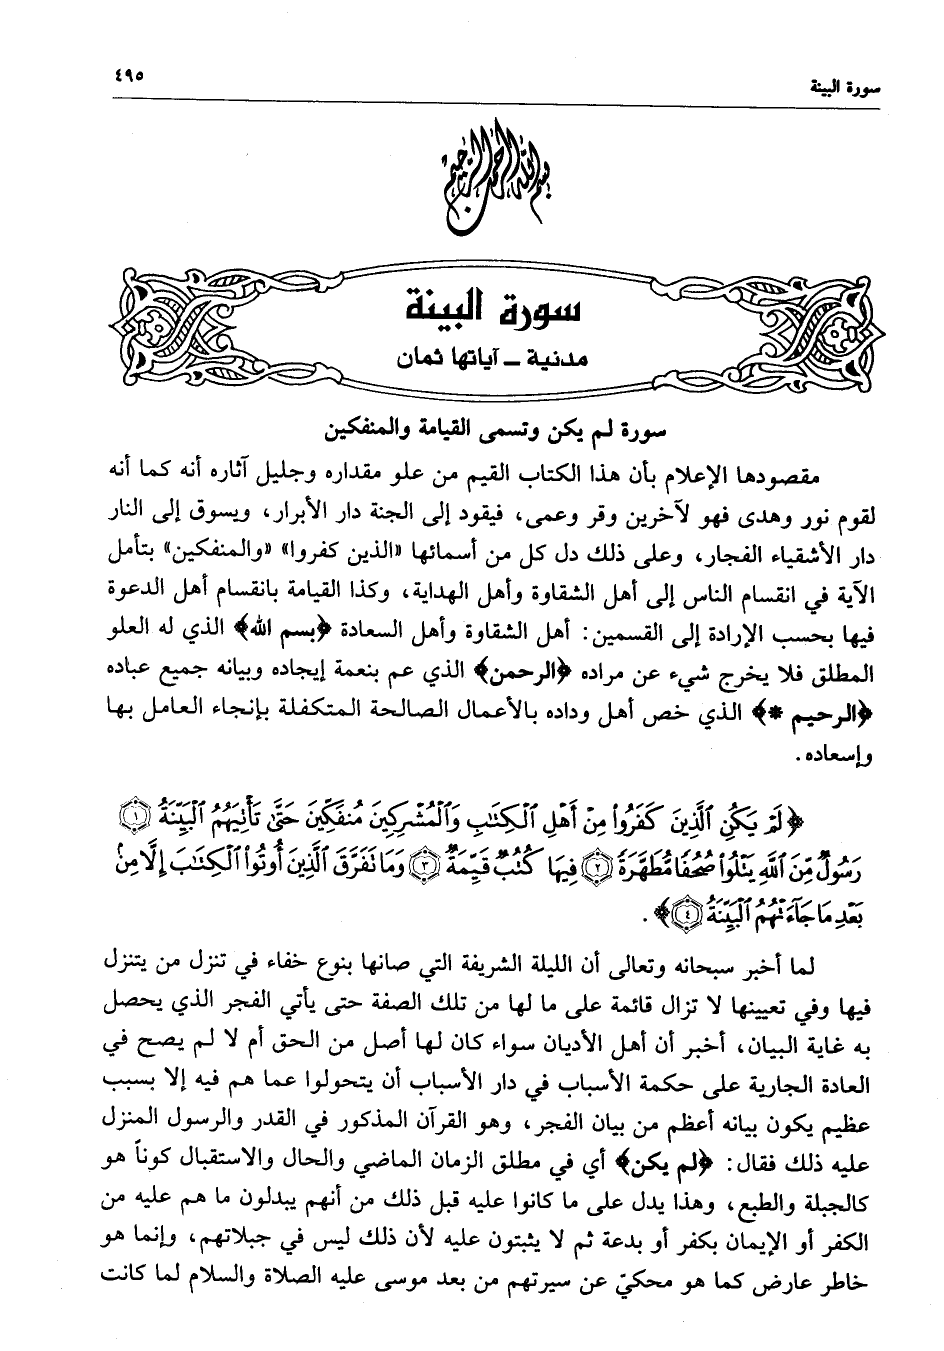 سورة البينة
٤٩٥
بسم الله الرحمن الرحيم
سورة البينة
مدنية ــ آياتها ثمان
سورة لم يكن وتسمى القيامة والمنفكين
مقصودها الإعلام بأن هذا الكتاب القيم من علو مقداره وجليل آثاره أنه كما أنه
لقوم نور وهدى فهو لآخرين وقر وعمى، فيقود إلى الجنة دار الأبرار، ويسوق إلى النار
دار الأشقياء الفجار، وعلى ذلك دل كل من أسمائها «الذين كفروا» «والمنفكين» بتأمل
الآية في انقسام الناس إلى أهل الشقاوة وأهل الهداية، وكذا القيامة بانقسام أهل الدعوة
فيها بحسب الإرادة إلى القسمين: أهل الشقاوة وأهل السعادة ﴿بسم الله﴾ الذي له العلو
المطلق فلا يخرج شيء عن مراده ﴿الرحمن﴾ الذي عم بنعمة إيجاده وبيانه جميع عباده
﴿الرحيم *﴾ الذي خص أهل وداده بالأعمال الصالحة المتكفلة بإنجاء العامل بها
وإسعاده.
﴿لَمْ يَكُنِ ٱلَّذِينَ كَفَرُوا۟ مِنْ أَهْلِ ٱلْكِتَٰبِ وَٱلْمُشْرِكِينَ مُنفَكِّينَ حَتَّىٰ تَأْتِيَهُمُ ٱلْبَيِّنَةُ ۝١
رَسُولٌ مِّنَ ٱللَّهِ يَتْلُوا۟ صُحُفًا مُّطَهَّرَةً ۝٢ فِيهَا كُتُبٌ قَيِّمَةٌ ۝٣ وَمَا تَفَرَّقَ ٱلَّذِينَ أُوتُوا۟ ٱلْكِتَٰبَ إِلَّا مِنۢ
بَعْدِ مَا جَآءَتْهُمُ ٱلْبَيِّنَةُ ۝٤﴾.
لما أخبر سبحانه وتعالى أن الليلة الشريفة التي صانها بنوع خفاء في تنزل من يتنزل
فيها وفي تعيينها لا تزال قائمة على ما لها من تلك الصفة حتى يأتي الفجر الذي يحصل
به غاية البيان، أخبر أن أهل الأديان سواء كان لها أصل من الحق أم لا لم يصح في
العادة الجارية على حكمة الأسباب في دار الأسباب أن يتحولوا عما هم فيه إلا بسبب
عظيم يكون بيانه أعظم من بيان الفجر، وهو القرآن المذكور في القدر والرسول المنزل
عليه ذلك فقال: ﴿لم يكن﴾ أي في مطلق الزمان الماضي والحال والاستقبال كوناً هو
كالجبلة والطبع، وهذا يدل على ما كانوا عليه قبل ذلك من أنهم يبدلون ما هم عليه من
الكفر أو الإيمان بكفر أو بدعة ثم لا يثبتون عليه لأن ذلك ليس في جبلاتهم، وإنما هو
خاطر عارض كما هو محكيّ عن سيرتهم من بعد موسى عليه الصلاة والسلام لما كانت